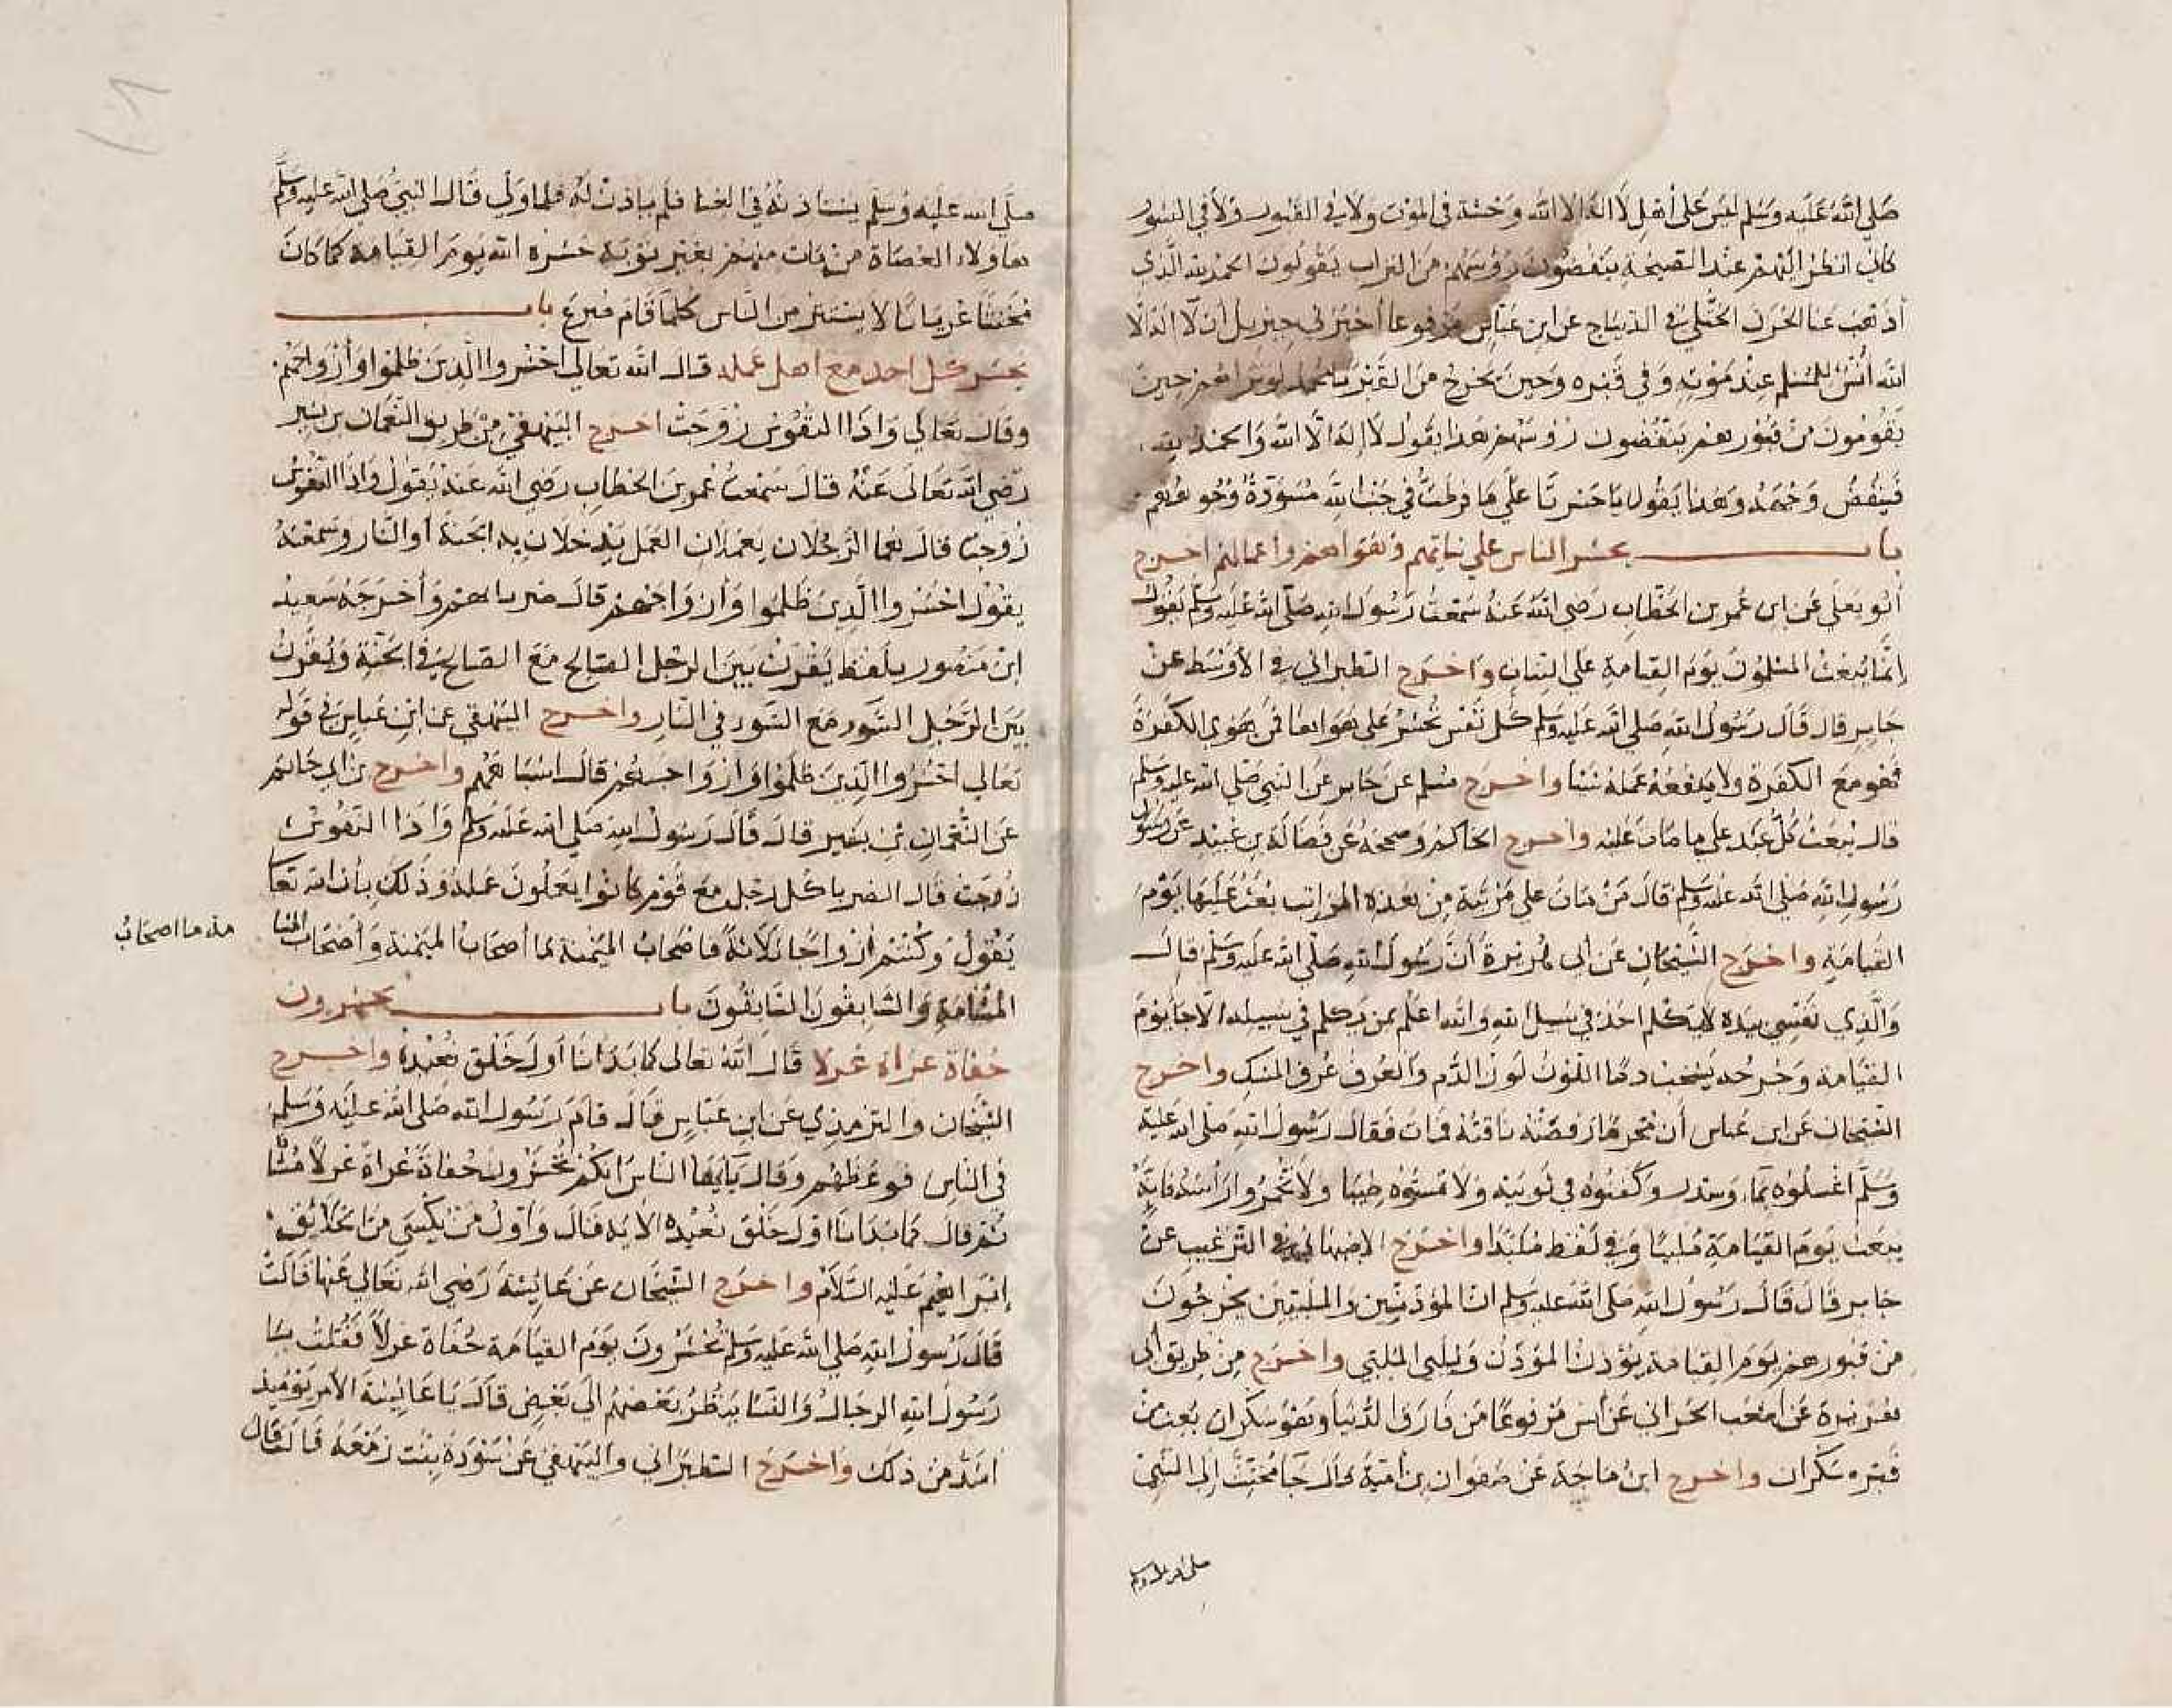 صلى الله عليه وسلم ليس على أهل لا اله الا الله وحشة في الموت ولا في القبور ولا في النشور
كاني انظر اليهم عند الصيحة ينفضون رؤسهم من التراب يقولون الحمد لله الذي
أذهب عنا الحزن الختلي في الديباج عن ابن عباس مرفوعا أخبرني جبريل أن لا اله الا
الله أنس للمسلم عند موته وفي قبره وحين يخرج من القبر يا محمد لو تراهم حين
يقومون من قبورهم ينفضون رؤسهم هذا يقول لا إله الا الله والحمد لله
فينفض وجهه وهذا يقول يا حسرتا على ما فرطت في جنب الله مسودة وجوههم
باب يحشر الناس على نياتهم وهواهم وأعمالهم اخرج
أبو يعلى عن ابن عمر بن الخطاب رضي الله عنه سمعت رسول الله صلى الله عليه وسلم يقول
إنما يبعث المسلمون يوم القيامة على النيات واخرج الطبراني في الأوسط عن
جابر قال قال رسول الله صلى الله عليه وسلم كل نفس تحشر على هواها فمن هوي الكفرة
فهو مع الكفرة ولا ينفعه عمله شيئا واخرج مسلم عن جابر عن النبي صلى الله عليه وسلم
قال يبعث كل عبد على ما مات عليه واخرج الحاكم وصححه عن فضالة بن عبيد عن رسول
رسول الله صلى الله عليه وسلم قال من مات على مرتبة من هذه المراتب بعث عليها يوم
القيامة واخرج الشيخان عن أبي هريرة أن رسول الله صلى الله عليه وسلم قال
والذي نفسي بيده لا يكلم احد في سبيل الله والله اعلم بمن يكلم في سبيله الا جا يوم
القيامة وجرحه يشخب دما اللون لون الدم والعرف عرف المسك واخرج
الشيخان عن ابن عباس أن محرما وقصته ناقته فمات فقال رسول الله صلى الله عليه
وسلم اغسلوه بماء وسدر وكفنوه في ثوبيه ولا تمسوه طيبا ولا تخمروا رأسه فانه
يبعث يوم القيامة ملبيا وفي لفظ ملبدا واخرج الاصبهاني في الترغيب عن
جابر قال قال رسول الله صلى الله عليه وسلم ان المؤذنين والملبين يخرجون
من قبورهم يوم القيامة يؤذن المؤذن ويلبي الملبي واخرج من طريق أبي
هريرة عن اشعب الحراني عن أنس مرفوعا من فارق الدنيا وهو سكران بعث من
قبره سكران واخرج ابن ماجة عن صفوان بن أمية قال جا مخنث إلى النبي
صلى الله عليه وسلم
صلى الله عليه وسلم يستاذنه في الغنا فلم ياذن له فلما ولي قال النبي صلى الله عليه وسلم
هاولاء العصاة من مات منهم بغير توبة حشره الله يوم القيامة كما كان
مخنثا عريانا لا يستتر من الناس كلما قام صرع باب
يحشر كل احد مع اهل عمله قال الله تعالى احشروا الذين ظلموا وأزواجهم
وقال تعالى واذا النفوس زوجت اخرج البيهقي من طريق النعمان بن بشير
رضي الله تعالى عنه قال سمعت عمر بن الخطاب رضي الله عنه يقول واذا النفوس
زوجت قال هما الرجلان يعملان العمل يدخلان به الجنة أو النار وسمعته
يقول احشروا الذين ظلموا وأزواجهم قال ضرباهم وأخرجه سعيد
ابن منصور بلفظ يقرن بين الرجل الصالح مع الصالح في الجنة ويقرن
بين الرجل السوء مع السوء في النار واخرج البيهقي عن ابن عباس في قوله
تعالى احشروا الذين ظلموا وازواجهم قال اشباههم واخرج بن ابي حاتم
عن النعمان بن بشير قال قال رسول الله صلى الله عليه وسلم واذا النفوس
زوجت قال الضربا كل رجل مع قوم كانوا يعملون عمله وذلك بأن الله تعا
يقول وكنتم أزواجا ثلاثة فاصحاب الميمنة ما أصحاب الميمنة وأصحاب المشا
مة ما اصحاب
المشأمة والسابقون السابقون باب يحشرون
حفاة عراة غرلا قال الله تعالى كما بدأنا أول خلق نعيده واخرج
الشيخان والترمذي عن ابن عباس قال قام رسول الله صلى الله عليه وسلم
في الناس فوعظهم وقال يا أيها الناس انكم تحشرون حفاة عراة غرلا مشاة
ثم قال كما بدأنا اول خلق نعيده الاية قال وأول من يكسى من الخلايق
إبراهيم عليه السلام واخرج الشيخان عن عايشة رضي الله تعالى عنها قالت
قال رسول الله صلى الله عليه وسلم تحشرون يوم القيامة حفاة غرلا فقلت يا
رسول الله الرجال والنسا ينظر بعضهم الى بعض قال يا عايشة الأمر يومئذ
اشد من ذلك واخرج الطبراني والبيهقي عن سودة بنت زمعة قالت قال